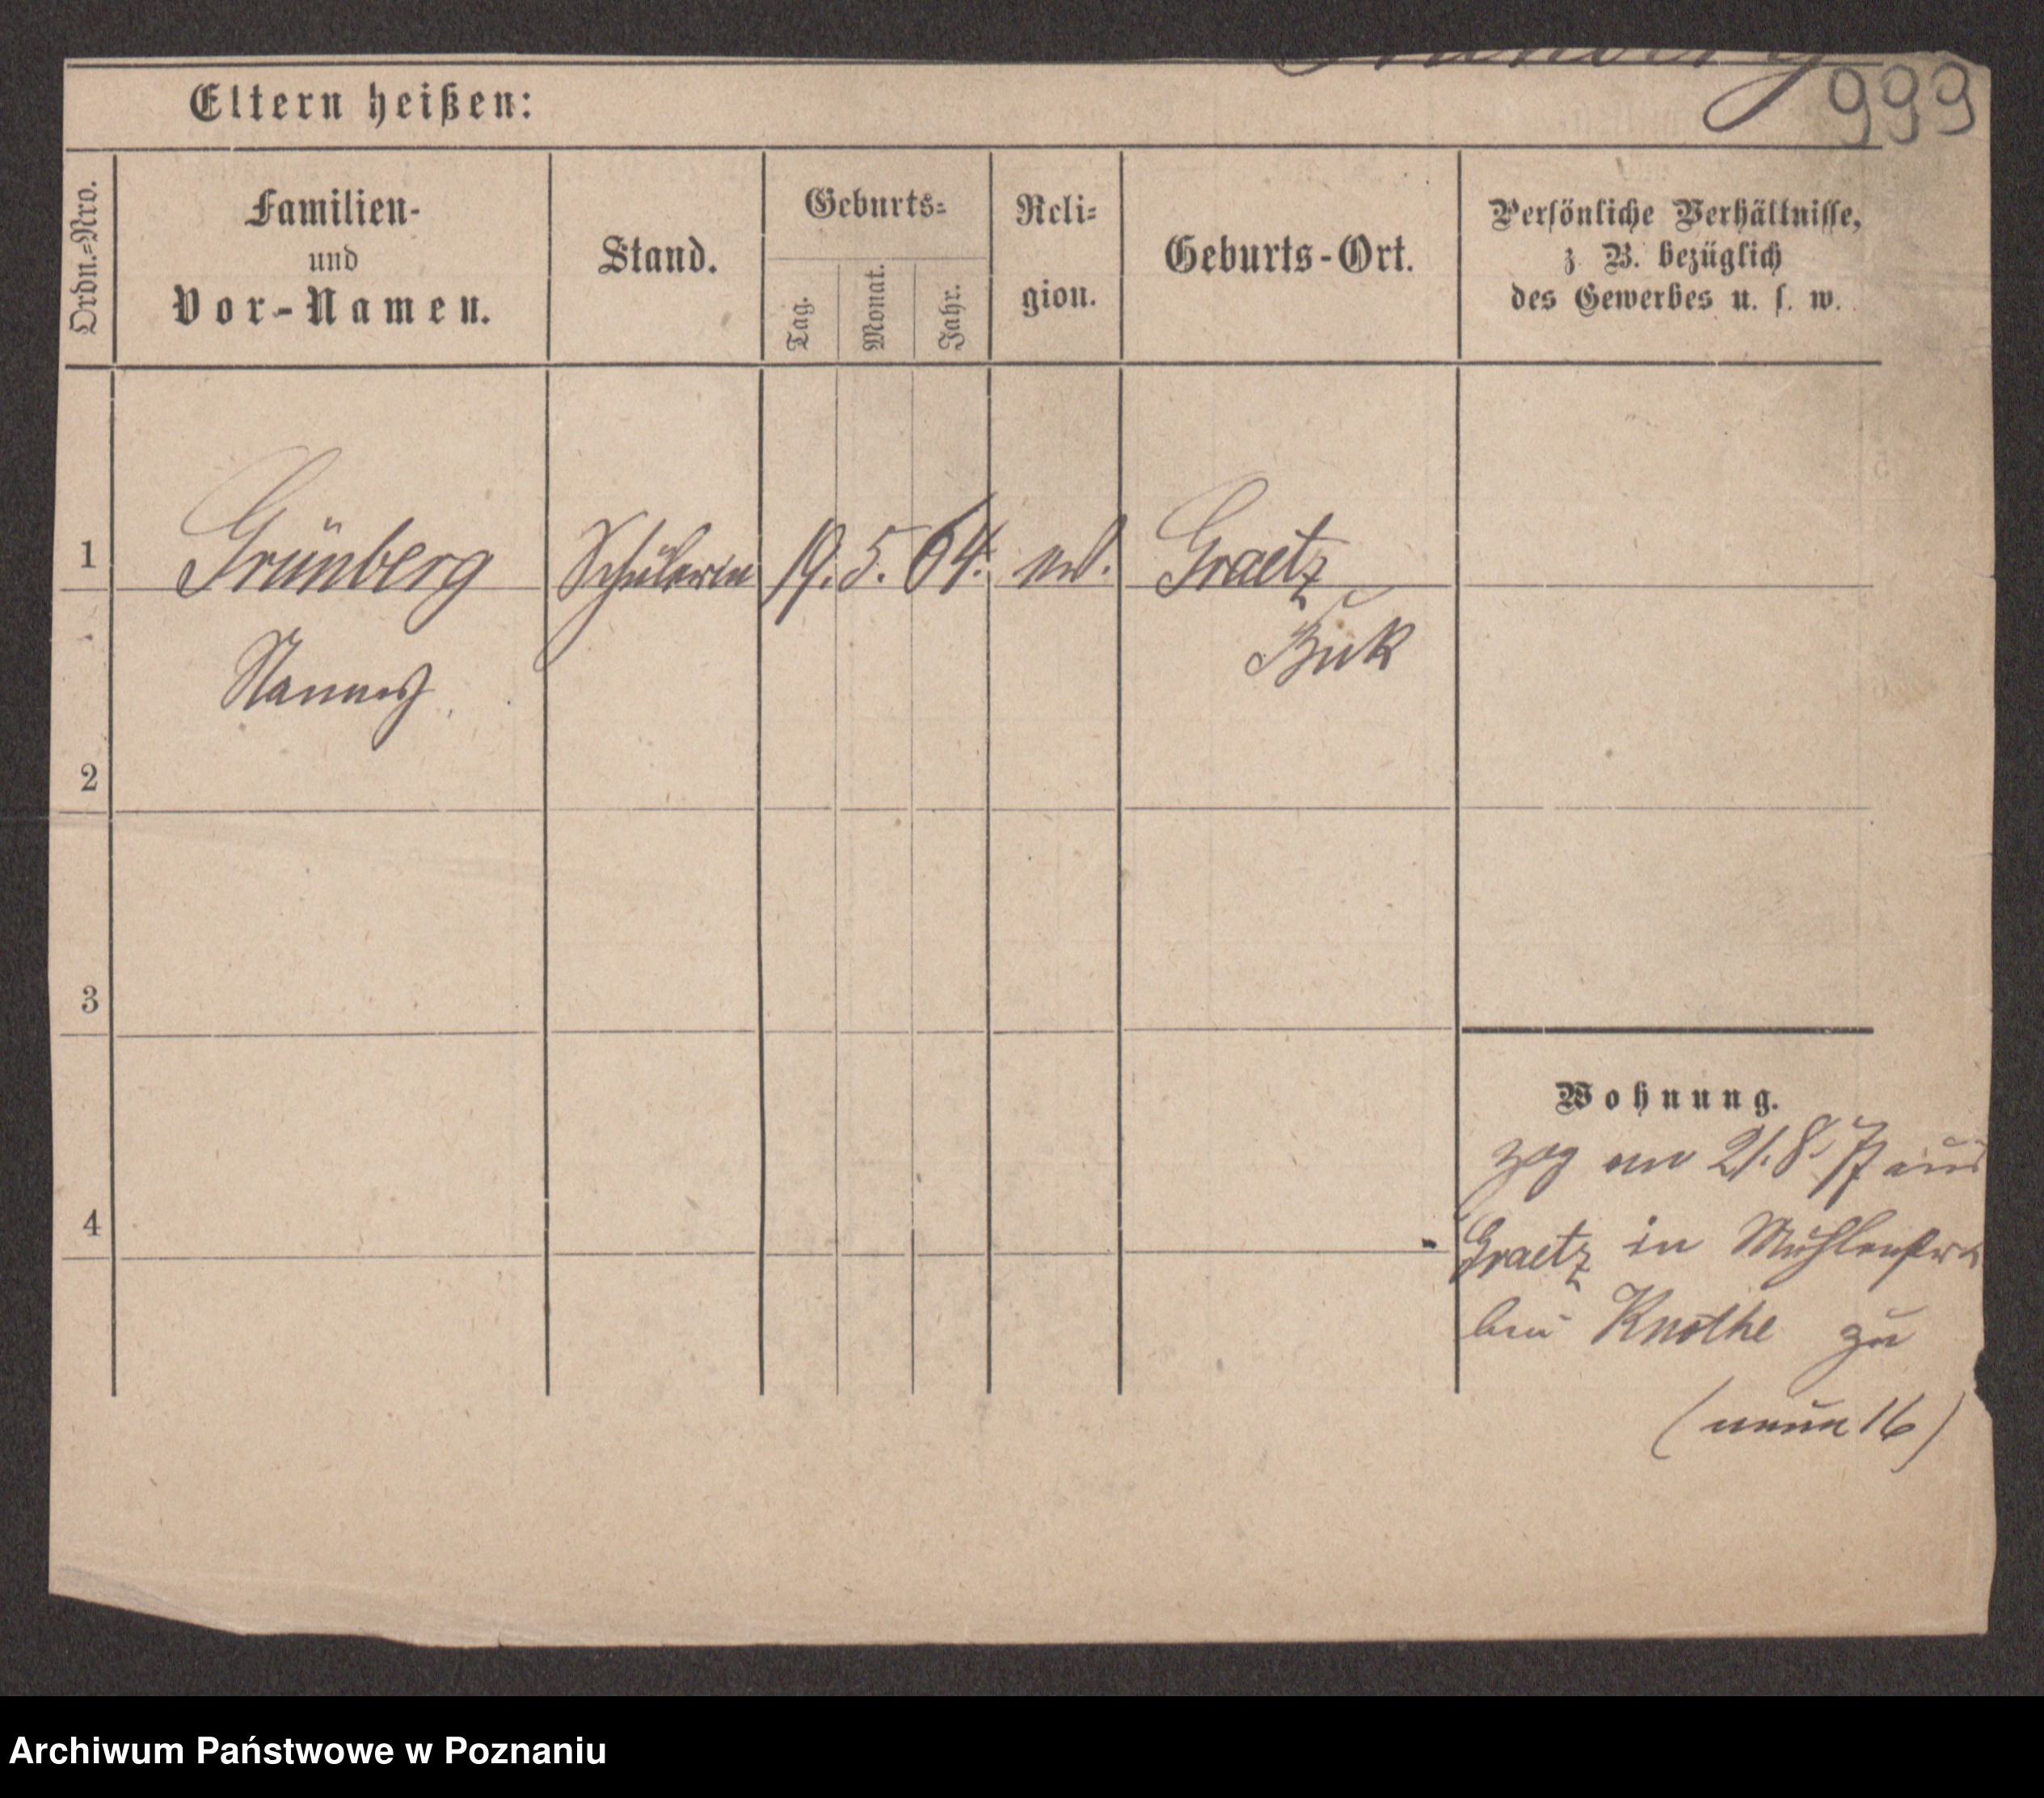 999
Eltern heißen:
Ordn.=Nro.
Familien-
und
Vor-Namen.
Stand.
Geburts=
Tag.
Monat.
Jahr.
Reli=
gion.
Geburts-Ort.
Persönliche Verhältnisse,
z. B. bezüglich
des Gewerbes u. s. w.
1
Grünberg
Schülerin
19. 5. 64.
Graetz
Buk
2
3
Wohnung.
zog am 21. 8. 77 aus
4
Graetz in Mühlenstr
bei Knothe zu
16)
Archiwum Państwowe w Poznaniu